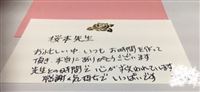 桜本先生
お忙しい中 いつも お時間を作って
頂き、本当に ありがとうございます
先生との時間で 心が救われています
感謝の気持ちで いっぱいです